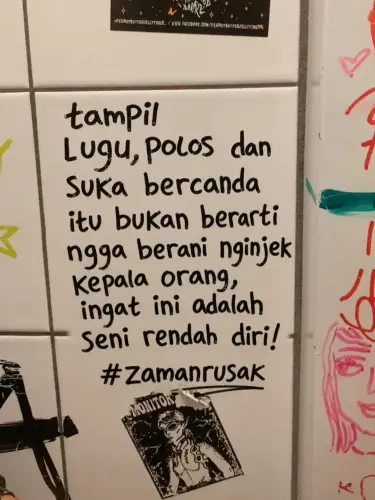 tampil
Lugu, Polos dan
suka bercanda
itu bukan berarti
ngga berani nginjek
kepala orang,
ingat ini adalah
seni rendah diri!
#zamanrusak
MONITOR